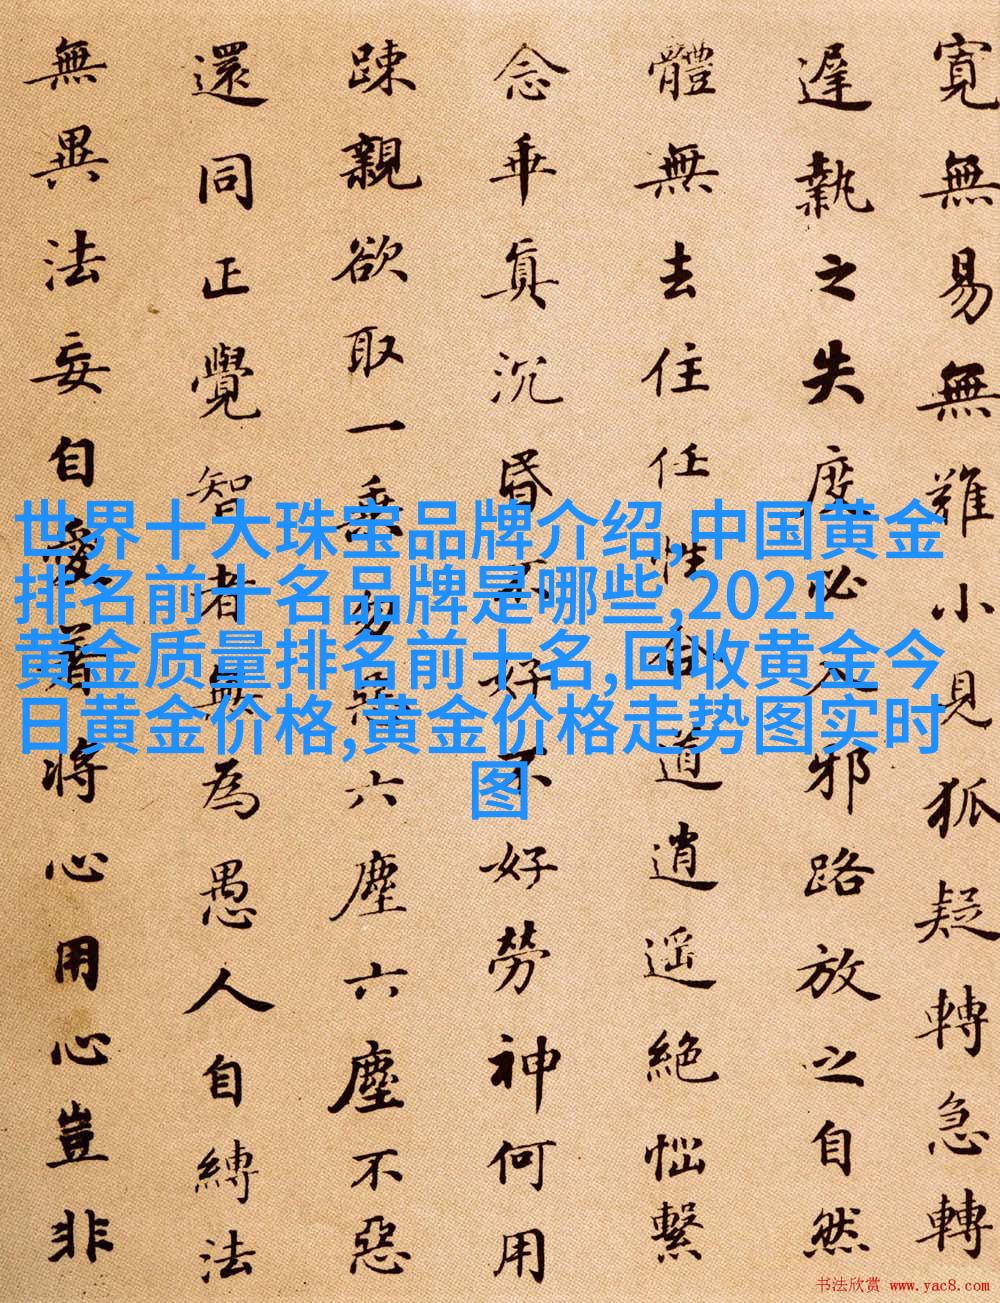 寬無易無難小見狐疑轉急轉
遲執之失度必入邪路放之自然
體無去住任性合道逍遥絕惱繫
念乖真沉昏不好不好勞神何用
踈親欲取一乘勿惡六塵六塵不惡
還同正覺智者無為愚人自縛法
無異法妄自愛著將心用心豈非
世界十大珠宝品牌介绍,中国黄金
排名前十名品牌是哪些,2021
黄金质量排名前十名,回收黄金今
日黄金价格,黄金价格走势图实时
图
书法欣赏 www.yac8.com